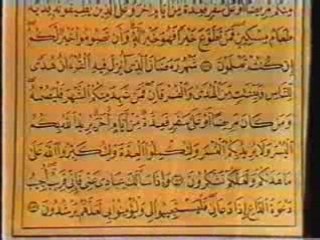 مِنْكُمْ مَرِيضًا أَوْ عَلَى سَفَرٍ فَعِدَّةٌ مِنْ أَيَّامٍ أُخَرَ وَعَلَى الَّذِينَ يُطِيقُونَهُ فِدْيَةٌ
طَعَامُ مِسْكِينٍ فَمَنْ تَطَوَّعَ خَيْرًا فَهُوَ خَيْرٌ لَهُ وَأَنْ تَصُومُوا خَيْرٌ لَكُمْ
إِنْ كُنْتُمْ تَعْلَمُونَ شَهْرُ رَمَضَانَ الَّذِي أُنْزِلَ فِيهِ الْقُرْآنُ هُدًى
لِلنَّاسِ وَبَيِّنَاتٍ مِنَ الْهُدَى وَالْفُرْقَانِ فَمَنْ شَهِدَ مِنْكُمُ الشَّهْرَ فَلْيَصُمْهُ
وَمَنْ كَانَ مَرِيضًا أَوْ عَلَى سَفَرٍ فَعِدَّةٌ مِنْ أَيَّامٍ أُخَرَ يُرِيدُ اللَّهُ بِكُمُ
الْيُسْرَ وَلَا يُرِيدُ بِكُمُ الْعُسْرَ وَلِتُكْمِلُوا الْعِدَّةَ وَلِتُكَبِّرُوا اللَّهَ عَلَى
مَا هَدَيكُمْ وَلَعَلَّكُمْ تَشْكُرُونَ وَإِذَا سَأَلَكَ عِبَادِي عَنِّي فَإِنِّي قَرِيبٌ أُجِيبُ
دَعْوَةَ الدَّاعِ إِذَا دَعَانِ فَلْيَسْتَجِيبُوا لِي وَلْيُؤْمِنُوا بِي لَعَلَّهُمْ يَرْشُدُونَ